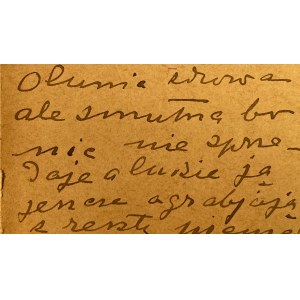 Olunia zdrowa
ale smutna bo
nic nie sprze-
daje a ludzie ją
jeszcze ograbiają
z reszty